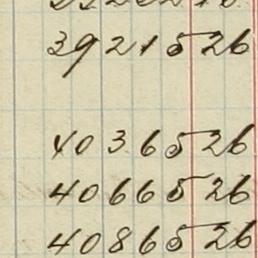 39215 26
40365 26
40665 26
40865 26